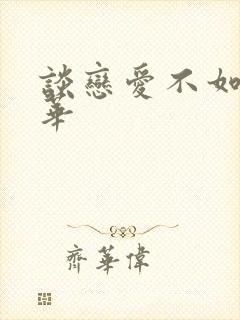 談戀愛不如
華
齊華偉